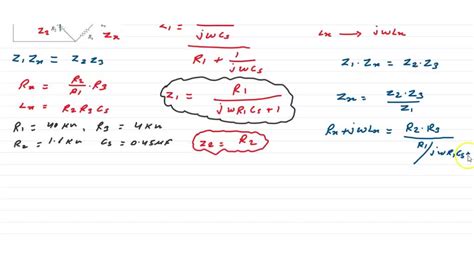 Z2
R3
Zx
Z1 Zx = Z2 Z3
Rx = R2/R1 · R3
Lx = R2 R3 Cs
R1 = 40 kΩ, R3 = 4 kΩ
Cs = 0.45 μF
Z1 =
jωCs
R1 + 1/jωCs
Z1 = R1/jωR1Cs + 1
Z2 = R2
Lx → jωLx
Z1 · Zx = Z2 · Z3
Zx = Z2 · Z3/Z1
Rx + jωLx = R2 · R3
R1/jωR1Cs+